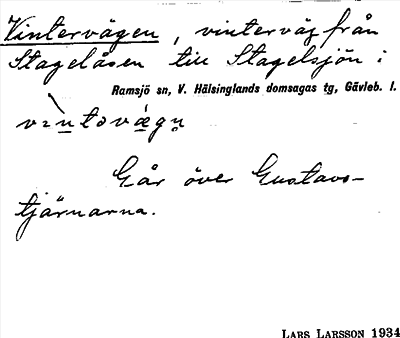 Vintervägen, vinterväg från
Stagelåsen till Stagelsjön i
Ramsjö sn, V. Hälsinglands domsagas tg, Gävleb. l.
Går över Gustavs-
tjärnarna.
LARS LARSSON 1934